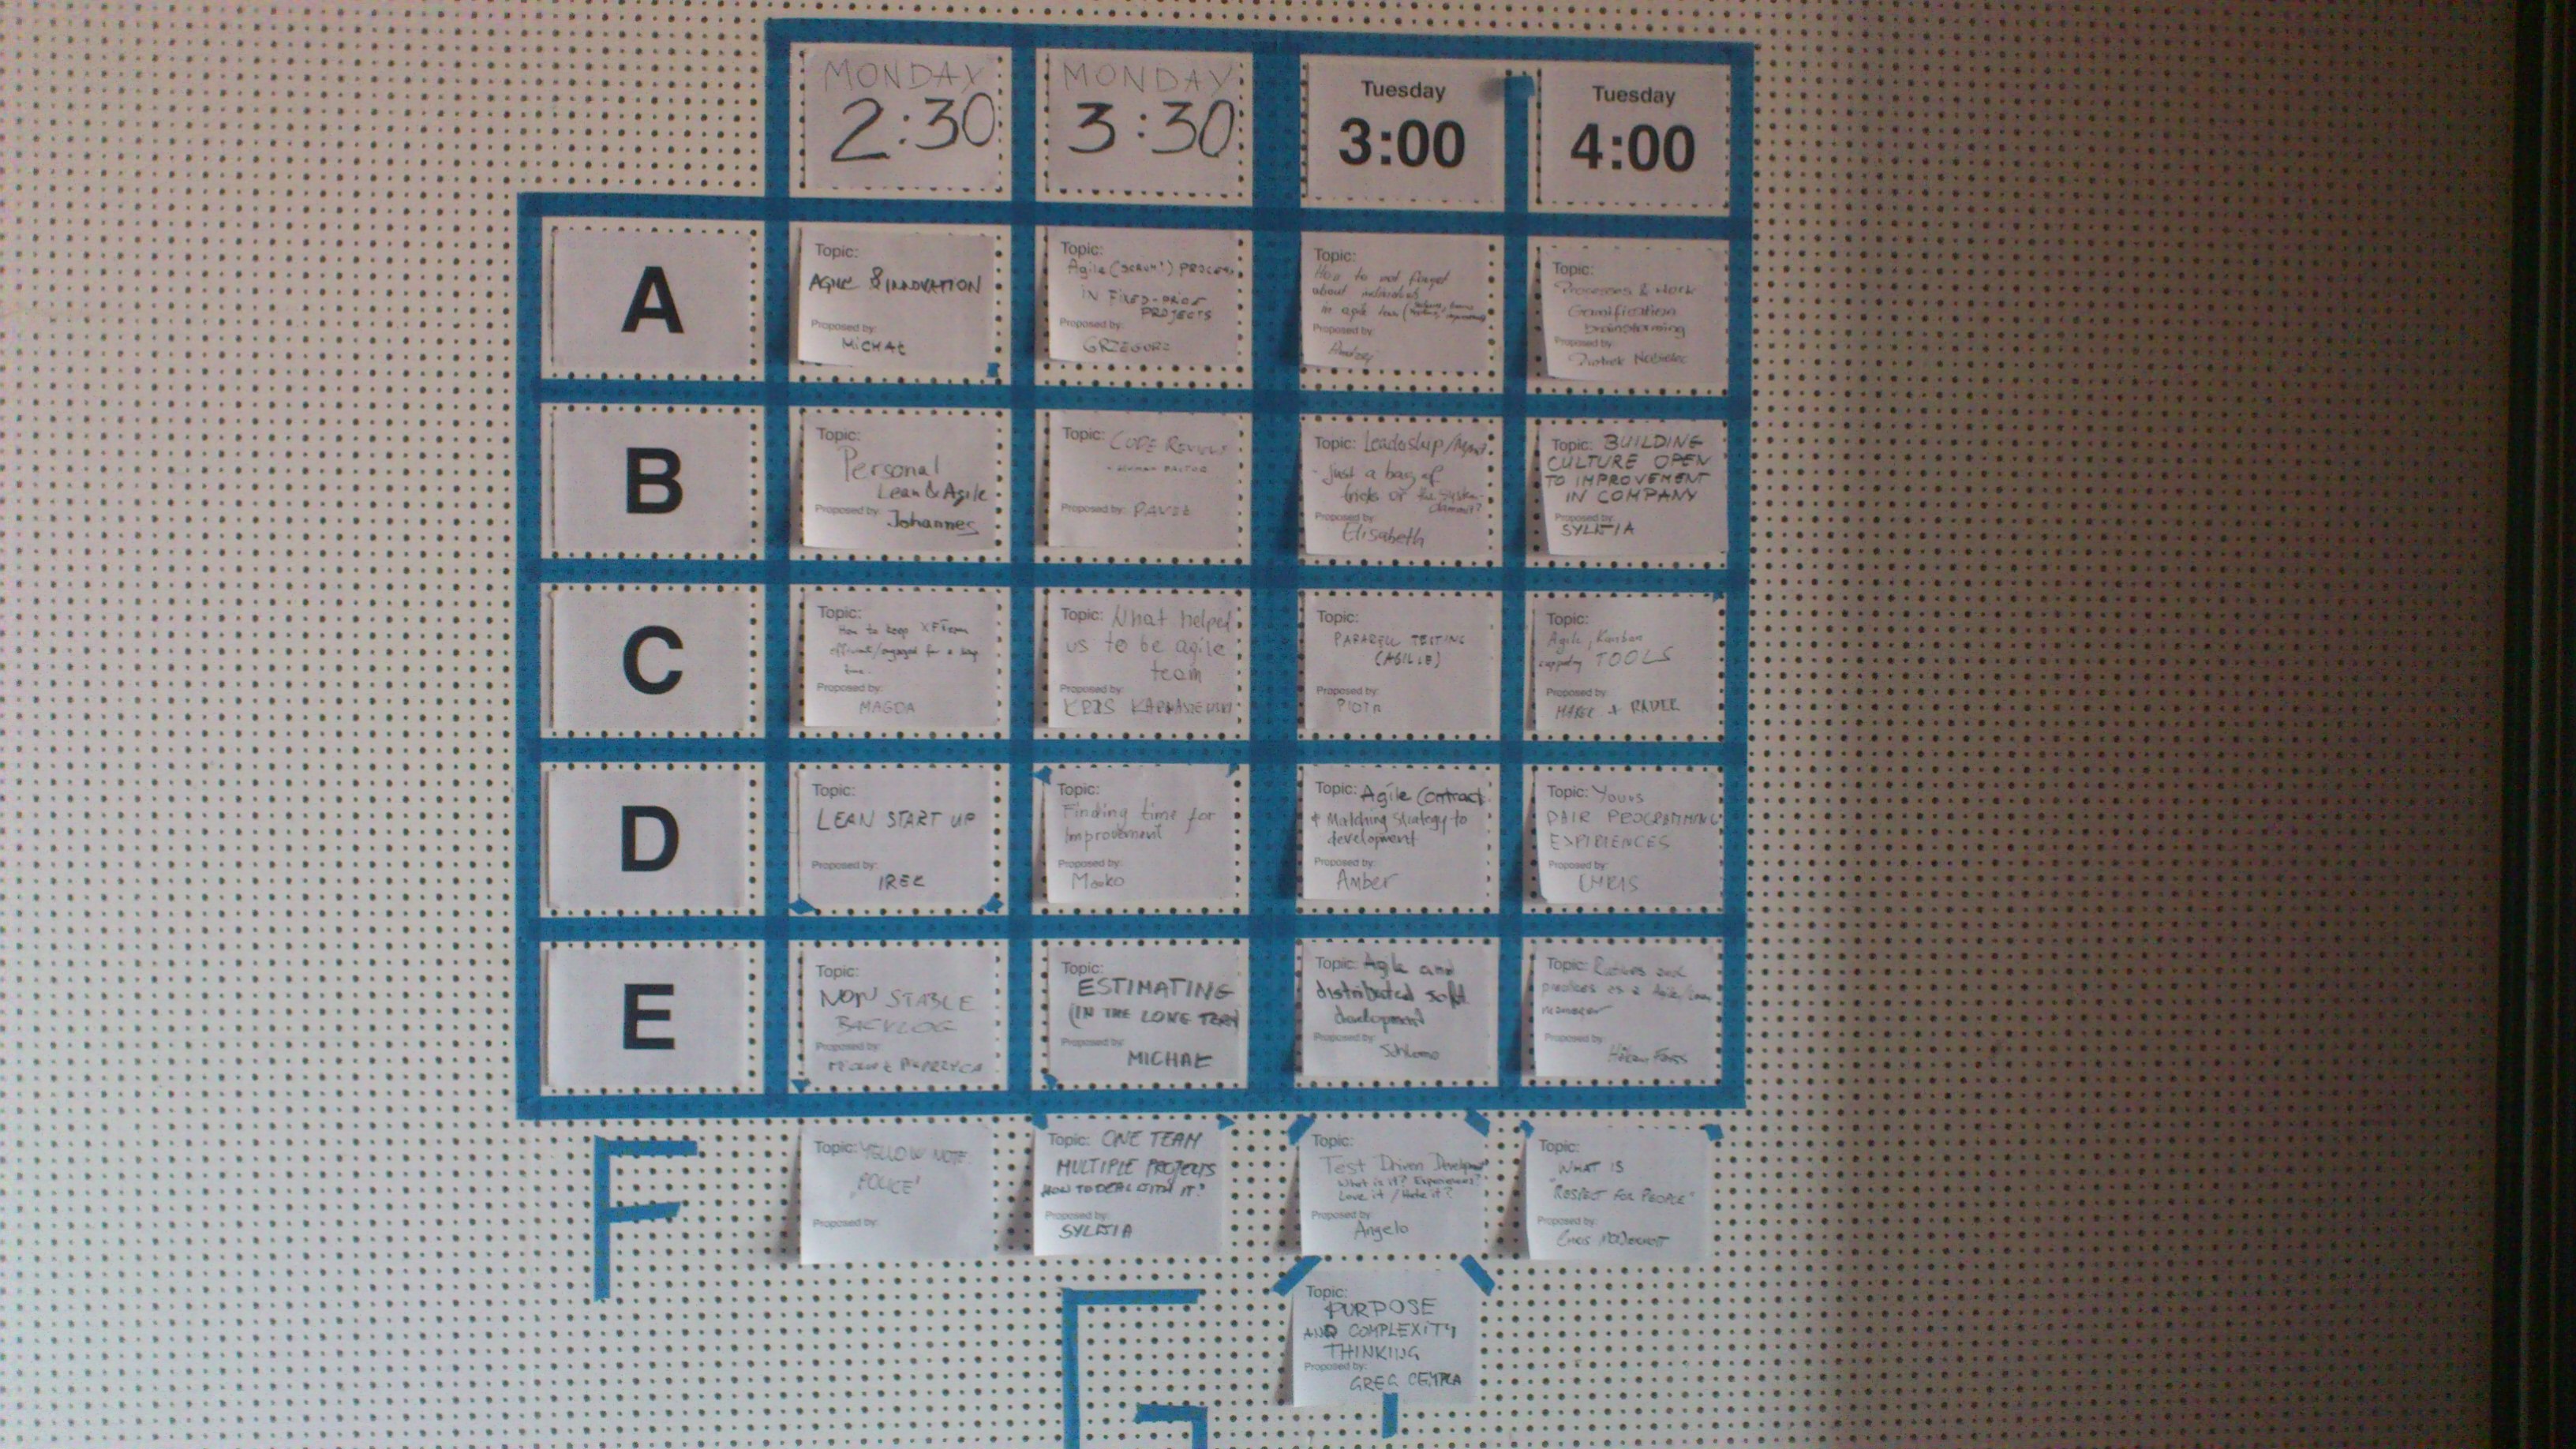 MONDAY
2:30
MONDAY
3:30
Tuesday
3:00
Tuesday
4:00
A
Topic:
AGILE & INNOVATION
Proposed by:
MICHAŁ
Topic:
Agile (SCRUM?) PROCESS
IN FIXED-PRICE
PROJECTS
Proposed by:
GRZEGORZ
Topic:
How to not forget
about individuals
in agile team
Proposed by:
Andrzej
Topic:
Processes & Work
Gamification
brainstorming
Proposed by:
B
Topic:
Personal
Lean & Agile
Proposed by:
Johannes
Topic: CODE REVIEW
- HUMAN FACTOR
Proposed by: PAWEŁ
Topic: Leadership/Mgmt.
- just a bag of
tricks or the system
dammit?
Proposed by:
Elisabeth
Topic: BUILDING
CULTURE OPEN
TO IMPROVEMENT
IN COMPANY
Proposed by:
SYLWIA
C
Topic:
How to keep XP Team
efficient/engaged for a long
time.
Proposed by:
MAGDA
Topic: What helped
us to be agile
team
Proposed by:
KRIS
Topic:
TESTING
(AGILE)
Proposed by:
PIOTR
Topic:
Agile, Kanban
supporting TOOLS
Proposed by:
MAREK + PAWEŁ
D
Topic:
LEAN START UP
Proposed by:
IREK
Topic:
Finding time for
Improvement
Proposed by:
Marko
Topic: Agile Contract
+ Matching Strategy to
development
Proposed by:
Amber
Topic: Yours
PAIR PROGRAMMING
EXPIRIENCES
Proposed by:
CHRIS
E
Topic:
NON STABLE
BACKLOG
Proposed by:
Topic:
ESTIMATING
(IN THE LONG TERM)
Proposed by:
MICHAŁ
Topic: Agile and
distributed soft
development
Proposed by:
Topic: and
practices as a Agile/Lean
manager
Proposed by:
Håkan Forss
F
Topic: YELLOW NOTE
POLICE'
Proposed by:
Topic: ONE TEAM
MULTIPLE PROJECTS
HOW TO DEAL WITH IT?
Proposed by:
SYLWIA
Topic:
Test Driven Development
What is it? Experiences?
Love it / Hate it?
Proposed by:
Angelo
Topic:
WHAT IS
"RESPECT FOR PEOPLE"
Proposed by:
G
Topic:
PURPOSE
AND COMPLEXITY
THINKING
Proposed by:
GREG